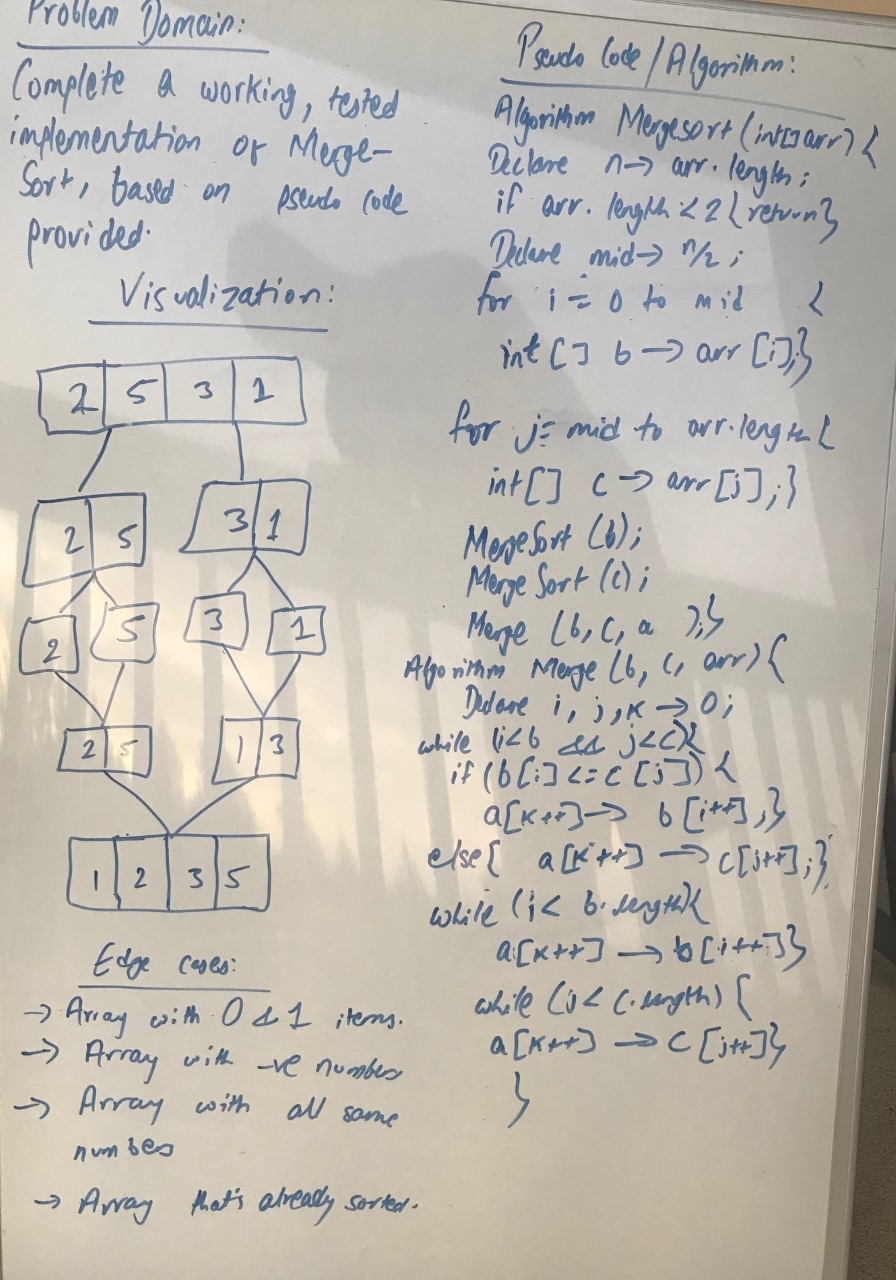 Problem Domain:
Complete a working, tested
implementation of Merge-
Sort, based on pseudo code
provided.
Visualization:
2 5 3 1
2 5 3 1
2 5 3 1
2 5 1 3
1 2 3 5
Edge cases:
→ Array with 0 & 1 items.
→ Array with -ve numbers
→ Array with all same
numbers
→ Array that's already sorted.
Pseudo Code/Algorithm:
Algorithm Mergesort (int[] arr) {
Declare n → arr.length;
if arr.length < 2 {return}
Declare mid → n/2;
for i = 0 to mid {
int [] b → arr [i];}
for j = mid to arr.length {
int[] c → arr[j];}
MergeSort (b);
MergeSort (c);
Merge (b, c, a );}
Algorithm Merge (b, c, arr) {
Declare i, j, k → 0;
while (i<b && j<c){
if (b[i] <= c[j]) {
a[k++] → b[i++];}
else{ a[k++] → c[j++];}
while (i < b.length){
a[k++] → b[i++]}
while (j < c.length) {
a[k++] → c[j++]}
}